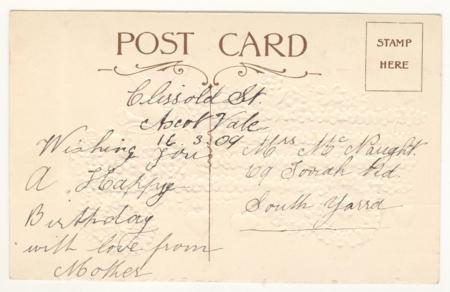 POST CARD
STAMP
HERE
Clissold St.
Ascot Vale
16 3 09
Wishing you
A Happy
Birthday
with love from
Mother
Mrs McNaught.
69 Toorak Rd.
South Yarra